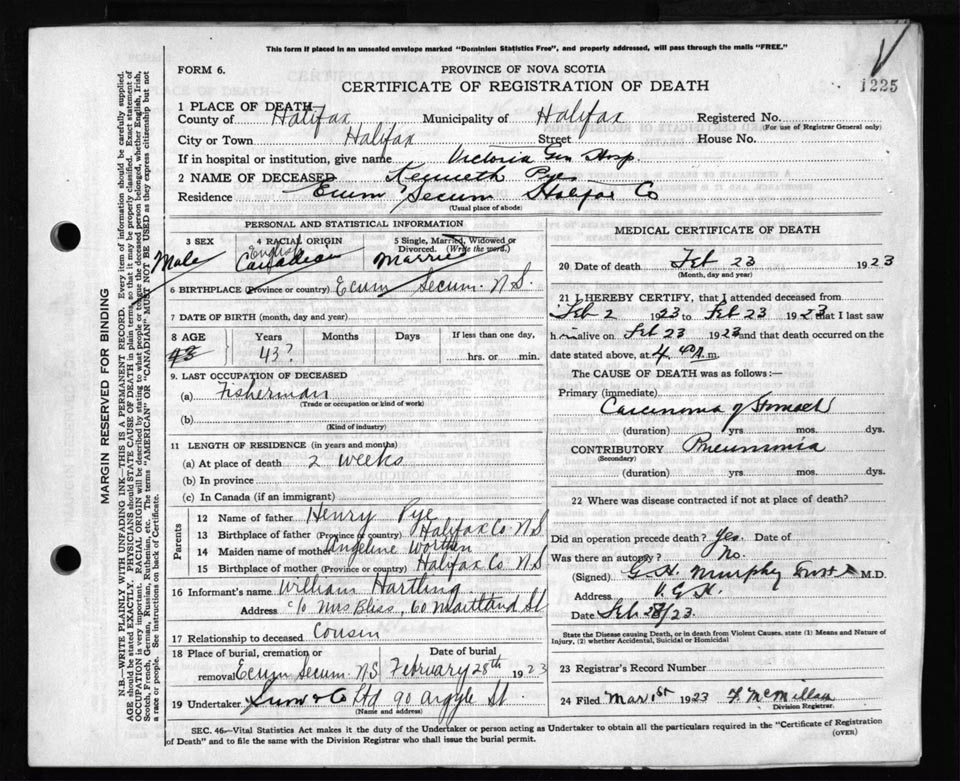 This form if placed in an unsealed envelope marked "Dominion Statistics Free", and properly addressed, will pass through the mails "FREE."
FORM 6.
PROVINCE OF NOVA SCOTIA
CERTIFICATE OF REGISTRATION OF DEATH
1225
1 PLACE OF DEATH
County of Halifax Municipality of Halifax Registered No.
(For use of Registrar General only)
City or Town Halifax Street House No.
If in hospital or institution, give name Victoria Gen Hosp.
2 NAME OF DECEASED Kenneth Pye
Residence Ecum Secum Halifax Co
(Usual place of abode)
PERSONAL AND STATISTICAL INFORMATION
3 SEX 4 RACIAL ORIGIN 5 Single, Married, Widowed or Divorced. (Write the word.)
Male English Canadian Married
6 BIRTHPLACE (Province or country) Ecum Secum. N.S.
7 DATE OF BIRTH (month, day and year)
8 AGE Years Months Days If less than one day,
43 43? hrs. or min.
9. LAST OCCUPATION OF DECEASED
(a) Fisherman
(Trade or occupation or kind of work)
(b)
(Kind of industry)
11 LENGTH OF RESIDENCE (in years and months)
(a) At place of death 2 weeks
(b) In province
(c) In Canada (if an immigrant)
Parents
12 Name of father Henry Pye
13 Birthplace of father (Province or country) Halifax Co. N.S
14 Maiden name of mother Angeline
15 Birthplace of mother (Province or country) Halifax Co N.S
16 Informant's name William Hartling
Address c/o Mrs Bliss, 60 Maitland St
17 Relationship to deceased Cousin
18 Place of burial, cremation or removal Date of burial
Ecum Secum N.S February 28th 1923
19 Undertaker Snow & Co Ltd 90 Argyle St.
(Name and address)
MEDICAL CERTIFICATE OF DEATH
20 Date of death Feb 23 1923
(Month, day and year)
21 I HEREBY CERTIFY, that I attended deceased from
Feb 2 1923 to Feb 23 1923 that I last saw
him alive on Feb 23 1923 and that death occurred on
date stated above, at 4.40 A.m.
The CAUSE OF DEATH was as follows:—
Primary (immediate)
Carcinoma of Stomach
(duration) yrs. mos. dys.
CONTRIBUTORY Pneumonia
(Secondary)
(duration) yrs. mos. dys.
22 Where was disease contracted if not at place of death?
Did an operation precede death? Yes. Date of
Was there an autopsy? No.
(Signed) G. H. Murphy M.D.
Address V.G.H.
Date Feb 28/23.
State the Disease causing Death, or in death from Violent Causes. state (1) Means and Nature of Injury, (2) whether Accidental, Suicidal or Homicidal
23 Registrar's Record Number
24 Filed Mar 1st 1923 F McMillan
Division Registrar.
SEC. 46—Vital Statistics Act makes it the duty of the Undertaker or person acting as Undertaker to obtain all the particulars required in the "Certificate of Registration
of Death" and to file the same with the Division Registrar who shall issue the burial permit. (OVER)
MARGIN RESERVED FOR BINDING
N.B.—WRITE PLAINLY WITH UNFADING INK—THIS IS A PERMANENT RECORD. Every item of information should be carefully supplied.
AGE should be stated EXACTLY. PHYSICIANS should STATE CAUSE OF DEATH in plain terms, so that it may be properly classified. Exact statement of
OCCUPATION is very important. RACIAL ORIGIN will be described by stating to what people or tongue the deceased person belonged, whether English, Irish,
Scotch, French, German, Russian, Ruthenian, etc. The terms "AMERICAN" OR "CANADIAN" MUST NOT BE USED as they express citizenship but not
a race or people. See instructions on back of Certificate.